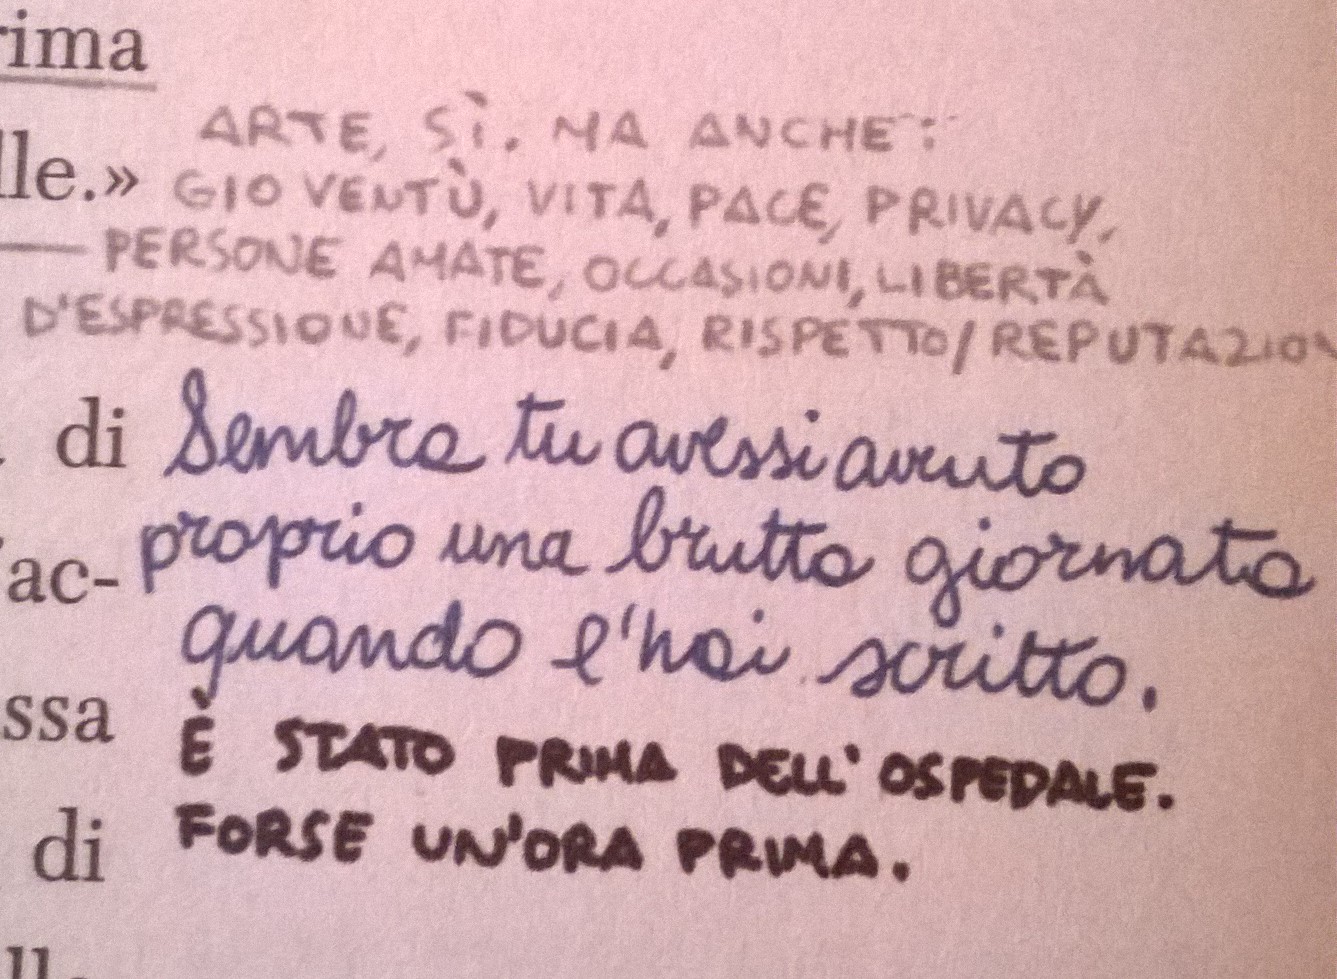 rima
ARTE, SÌ. MA ANCHE:
lle.» GIOVENTÙ, VITA, PACE, PRIVACY,
PERSONE AMATE, OCCASIONI, LIBERTÀ
D'ESPRESSIONE, FIDUCIA, RISPETTO/REPUTAZION
di Sembra tu avessi avuto
ac- proprio una brutta giornata
quando l'hai scritto.
ssa È STATO PRIMA DELL'OSPEDALE.
di FORSE UN'ORA PRIMA.